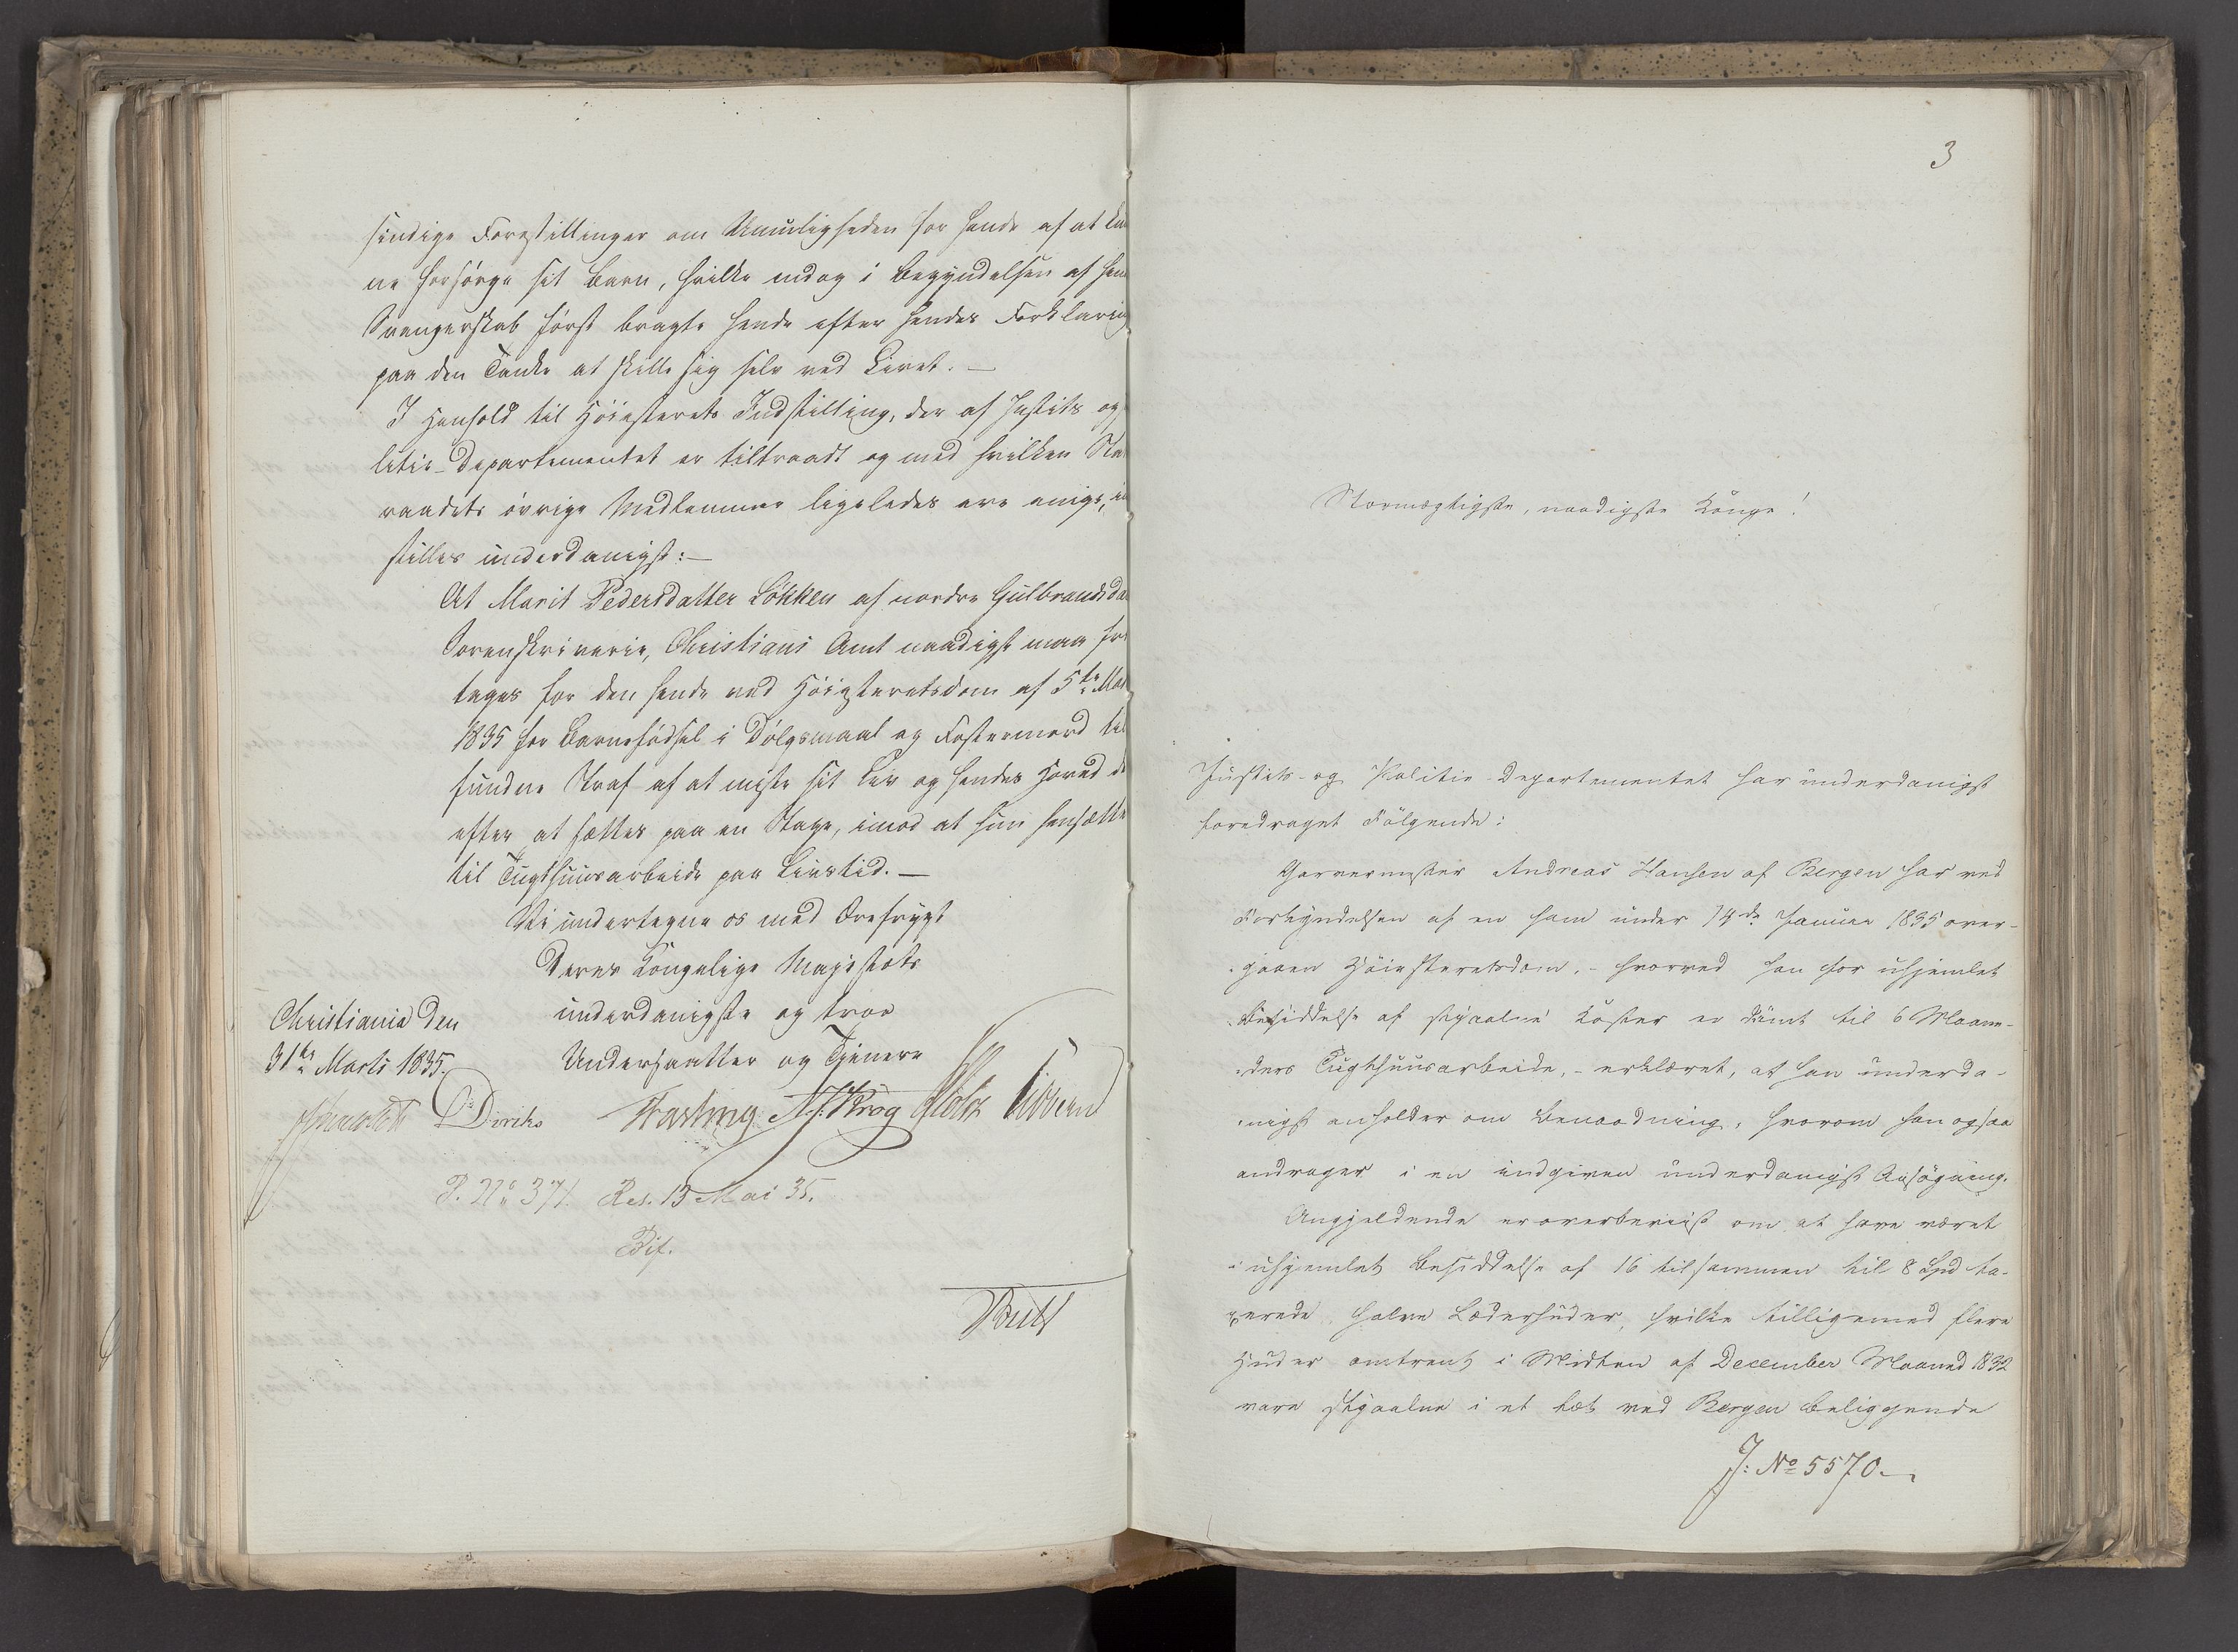 sindige Forestillinger om Umuligheden for hende af at kun
ne forsørge sit Barn, hvilke endog i Begyndelsen af hen
Svangerskab først bragte hende efter hendes Forklaring
paa den Tanke at skille sig selv ved Livet. —
I Henhold til Høiesterets Indstilling, der af Justits og
litie-Departementet er tiltraadt og med hvilken Sta
raadets øvrige Medlemmer ligeledes ere enige, in
stilles underdanigst:—
At Marit Pedersdatter Løkken af nordre Gulbrandsda
Sorenskriverie, Christians Amt naadigst maa fri
tages for den hende ved Høiesteretsdom af 5te Mar
1835 for Barnefødsel i Dølgsmaal og Fostermord til
fundne Straf af at miste sit Liv og hendes Hoved der
efter at sættes paa en Stage, imod at hun hensætte
til Tugthuusarbeide paa Livstid. —
Vi undertegne os med Ærefrygt
Deres Kongelige Majestæts
underdanigste og troe
Undersaatter og Tjenere
Christiania den
31te Marts 1835.
Diriks Fasting N. J. Krog Holst Sibbern
P. No 371. Res. 13 Mai 35.
Bif.
3
Stormægtigste, naadigste Konge!
Justits- og Politie-Departementet har underdanigst
foredraget Følgende:
Garvermester Andreas Hansen af Bergen har ved
Forkyndelsen af en ham under 14de Januar 1835 over-
gaaen Høiesteretsdom, - hvorved han for uhjemlet
Besiddelse af stjaalne Koster er dømt til 6 Maane-
ders Tugthuusarbeide, - erklæret, at han underda-
nigst anholder om Benaadning, hvorom han ogsaa
andrager i en indgiven underdanigst Ansøgning.
Angjeldende er overbeviist om at have været
i uhjemlet Besiddelse af 16 tilsammen til 8 Spd ta-
xerede halve Læderhuder, hvilke tilligemed flere
Huder omtrent i Midten af December Maaned 1832
vare stjaalne i et tæt ved Bergen beliggende
J: No 5570.